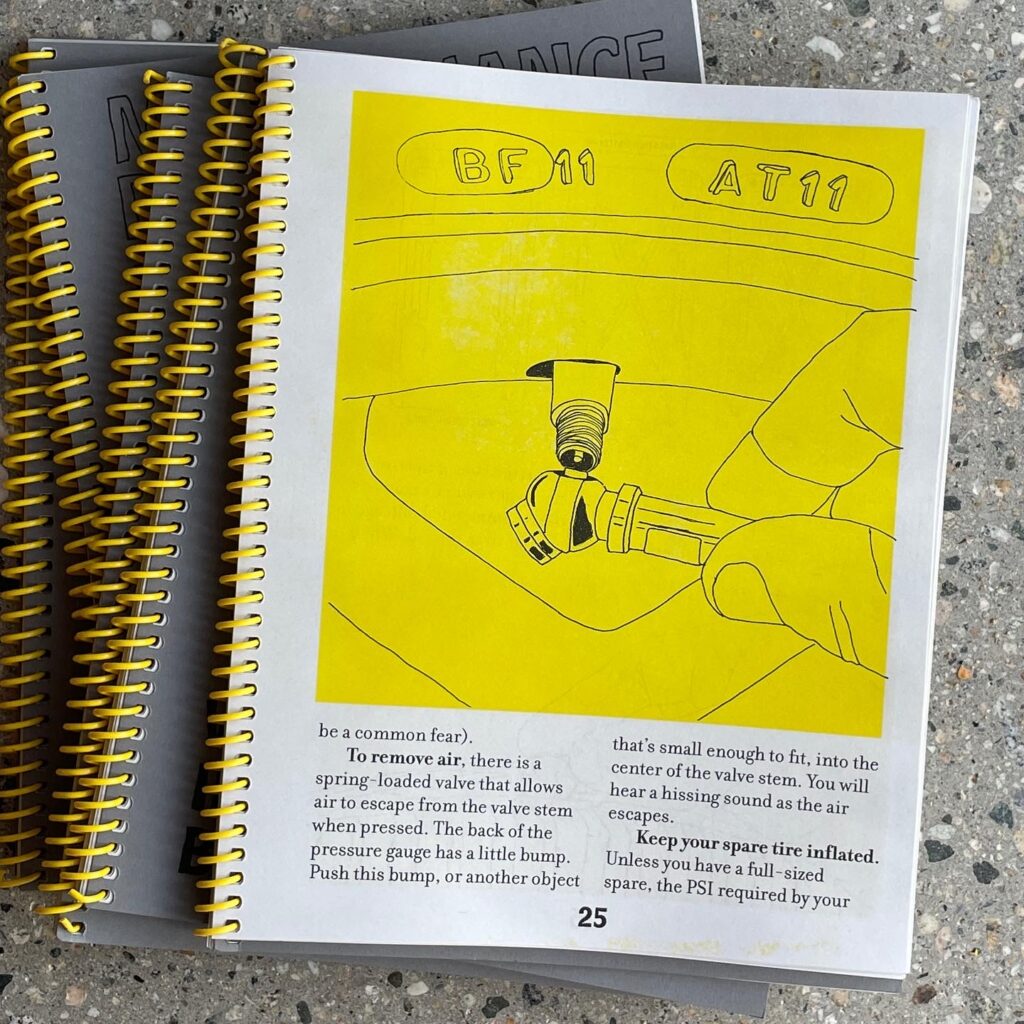 NANCE
BF11
AT11
be a common fear).
To remove air, there is a
spring-loaded valve that allows
air to escape from the valve stem
when pressed. The back of the
pressure gauge has a little bump.
Push this bump, or another object
that's small enough to fit, into the
center of the valve stem. You will
hear a hissing sound as the air
escapes.
Keep your spare tire inflated.
Unless you have a full-sized
spare, the PSI required by your
25